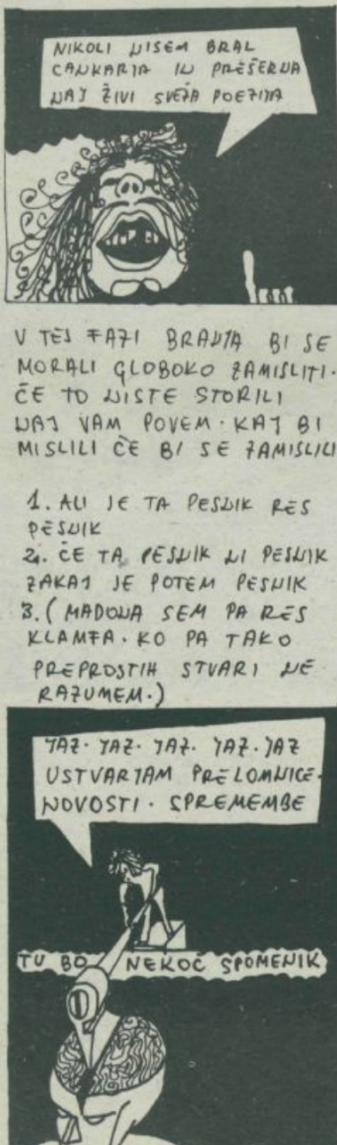 NIKOLI NISEM BRAL
CANKARJA IN PREŠERNA
NAJ ŽIVI SVEŽA POEZIJA
V TEJ FAZI BRANJA BI SE
MORALI GLOBOKO ZAMISLITI.
ČE TO NISTE STORILI
NAJ VAM POVEM. KAJ BI
MISLILI ČE BI SE ZAMISLILI
1. ALI JE TA PESNIK RES
PESNIK
2. ČE TA PESNIK NI PESNIK
ZAKAJ JE POTEM PESNIK
3. (MADONA SEM PA RES
KLAMFA. KO PA TAKO
PREPROSTIH STVARI NE
RAZUMEM.)
JAZ. JAZ. JAZ. JAZ. JAZ
USTVARJAM PRELOMNICE.
NOVOSTI. SPREMEMBE
TU BO NEKOČ SPOMENIK